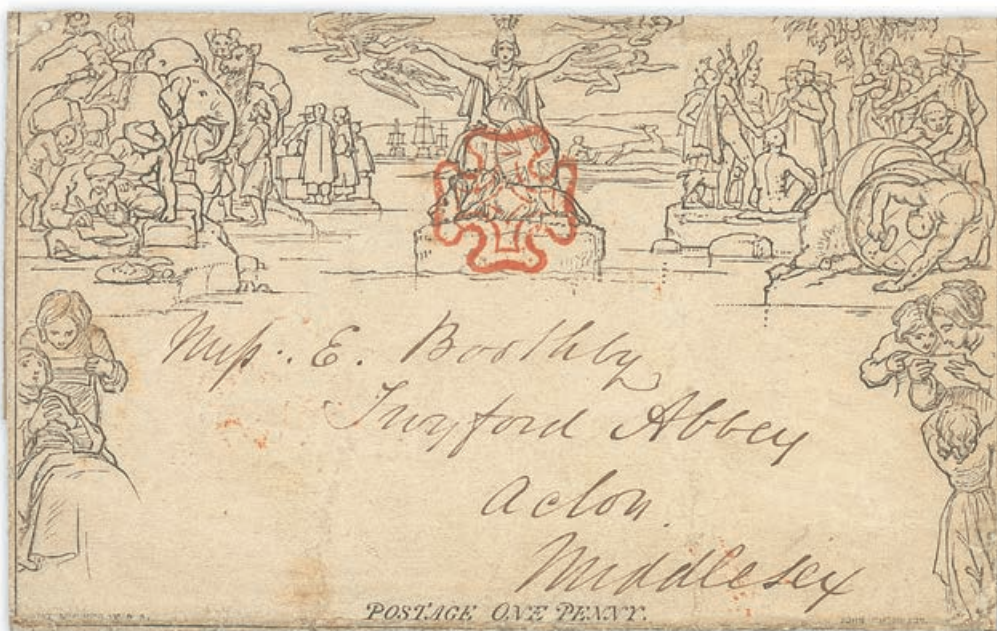 Miss. E. Boothby
Twyford Abbey
Acton.
Middlesex
POSTAGE ONE PENNY.